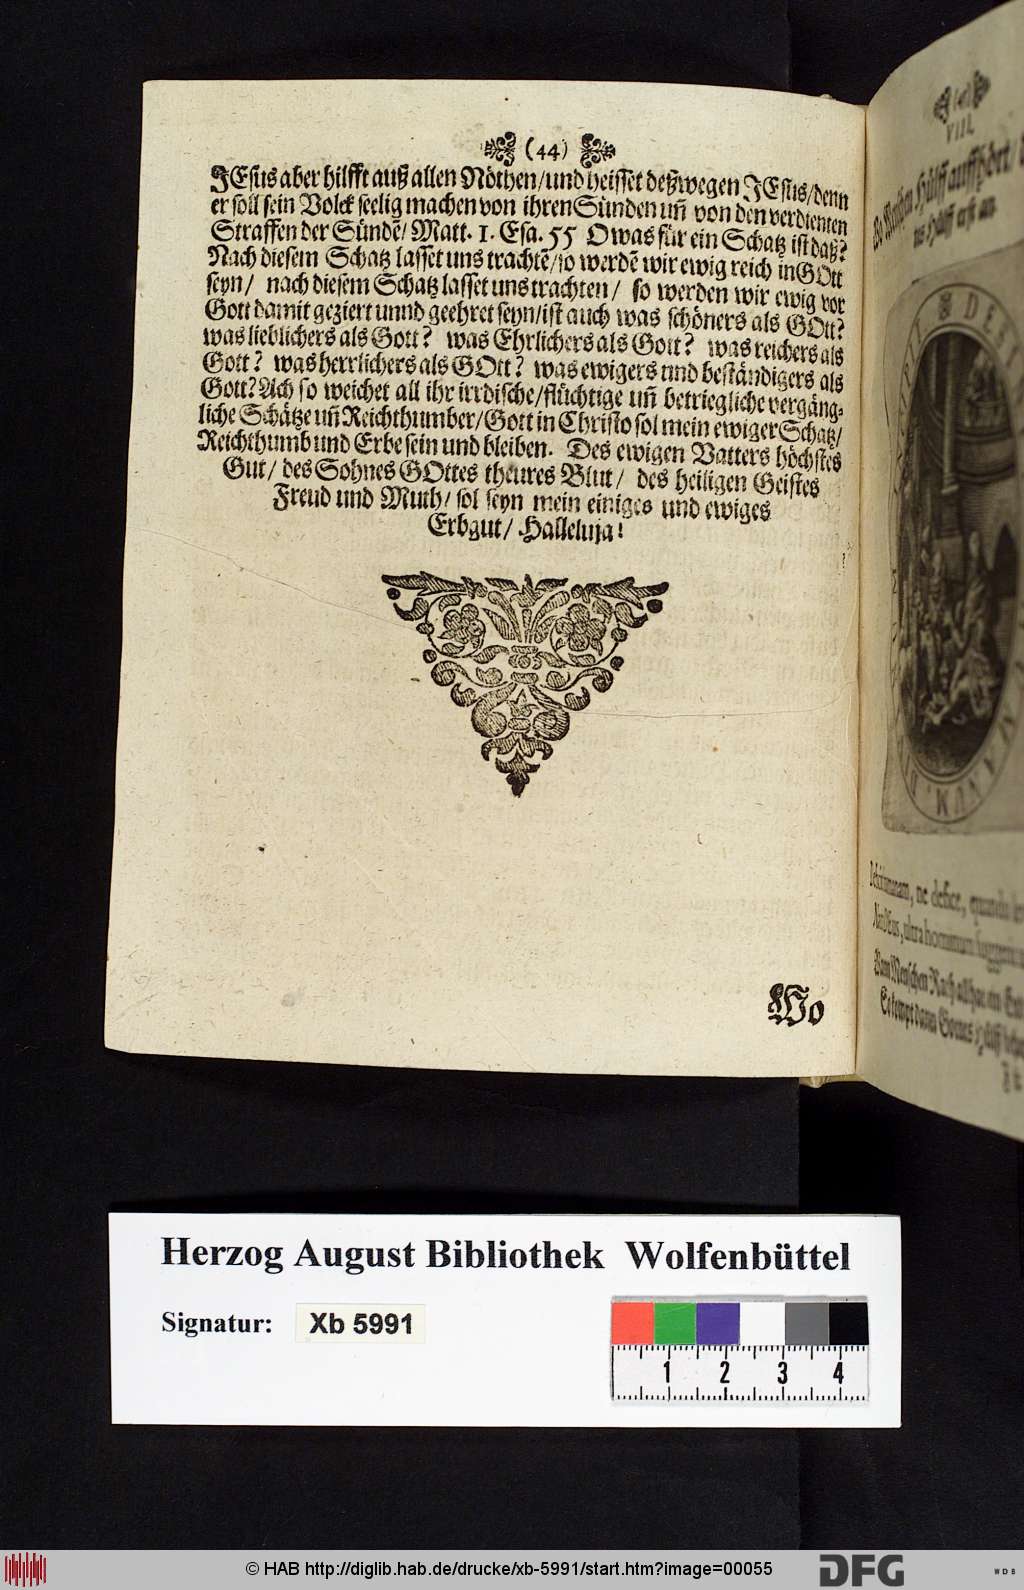 (44)
JEsus aber hilfft auß allen Nöthen/und heisset deßwegen JEsus/denn
er soll sein Volck seelig machen von ihren Sünden uñ von den verdienten
Straffen der Sündẽ/ Matt. 1. Esa. 55 O was für ein Schatz ist daß?
Nach diesem Schatz lasset uns trachtẽ/so werdẽ wir ewig reich in GOtt
seyn/ nach diesem Schatz lasset uns trachten/ so werden wir ewig vor
Gott damit geziert unnd geehret seyn/ist auch was schöners als GOtt?
was lieblichers als Gott? was Ehrlichers als Gott? was reichers als
Gott? was herrlichers als GOtt? was ewigers und beständigers als
Gott? Ach so weichet all ihr irrdische/flüchtige uñ betriegliche vergäng-
liche Schätze uñ Reichthumber/Gott in Christo sol mein ewiger Schatz/
Reichthumb und Erbe sein und bleiben. Des ewigen Vatters höchstes
Gut/ des Sohnes GOttes theures Blut/ des heiligen Geistes
Freud und Muth/ sol seyn mein einiges und ewiges
Erbgut/ Halleluja!
Wo
VIII.
Wo Menschen Hülff auffhört/
Hülff erst an.
ne defice, quando
Deus, ultra hominum
Wann Menschen Rath all hat ein End
So kompt dann Gottes Hülff
Herzog August Bibliothek Wolfenbüttel
Signatur: Xb 5991
1 2 3 4
© HAB http://diglib.hab.de/drucke/xb-5991/start.htm?image=00055
DFG
WDB